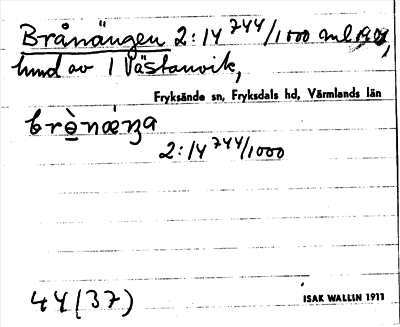 Brånängen 2:14 744/1000 ml 1909,
hmd av 1 Västanvik,
Fryksände sn, Fryksdals hd, Värmlands län
2:14 744/1000
44 (37)
ISAK WALLIN 1911